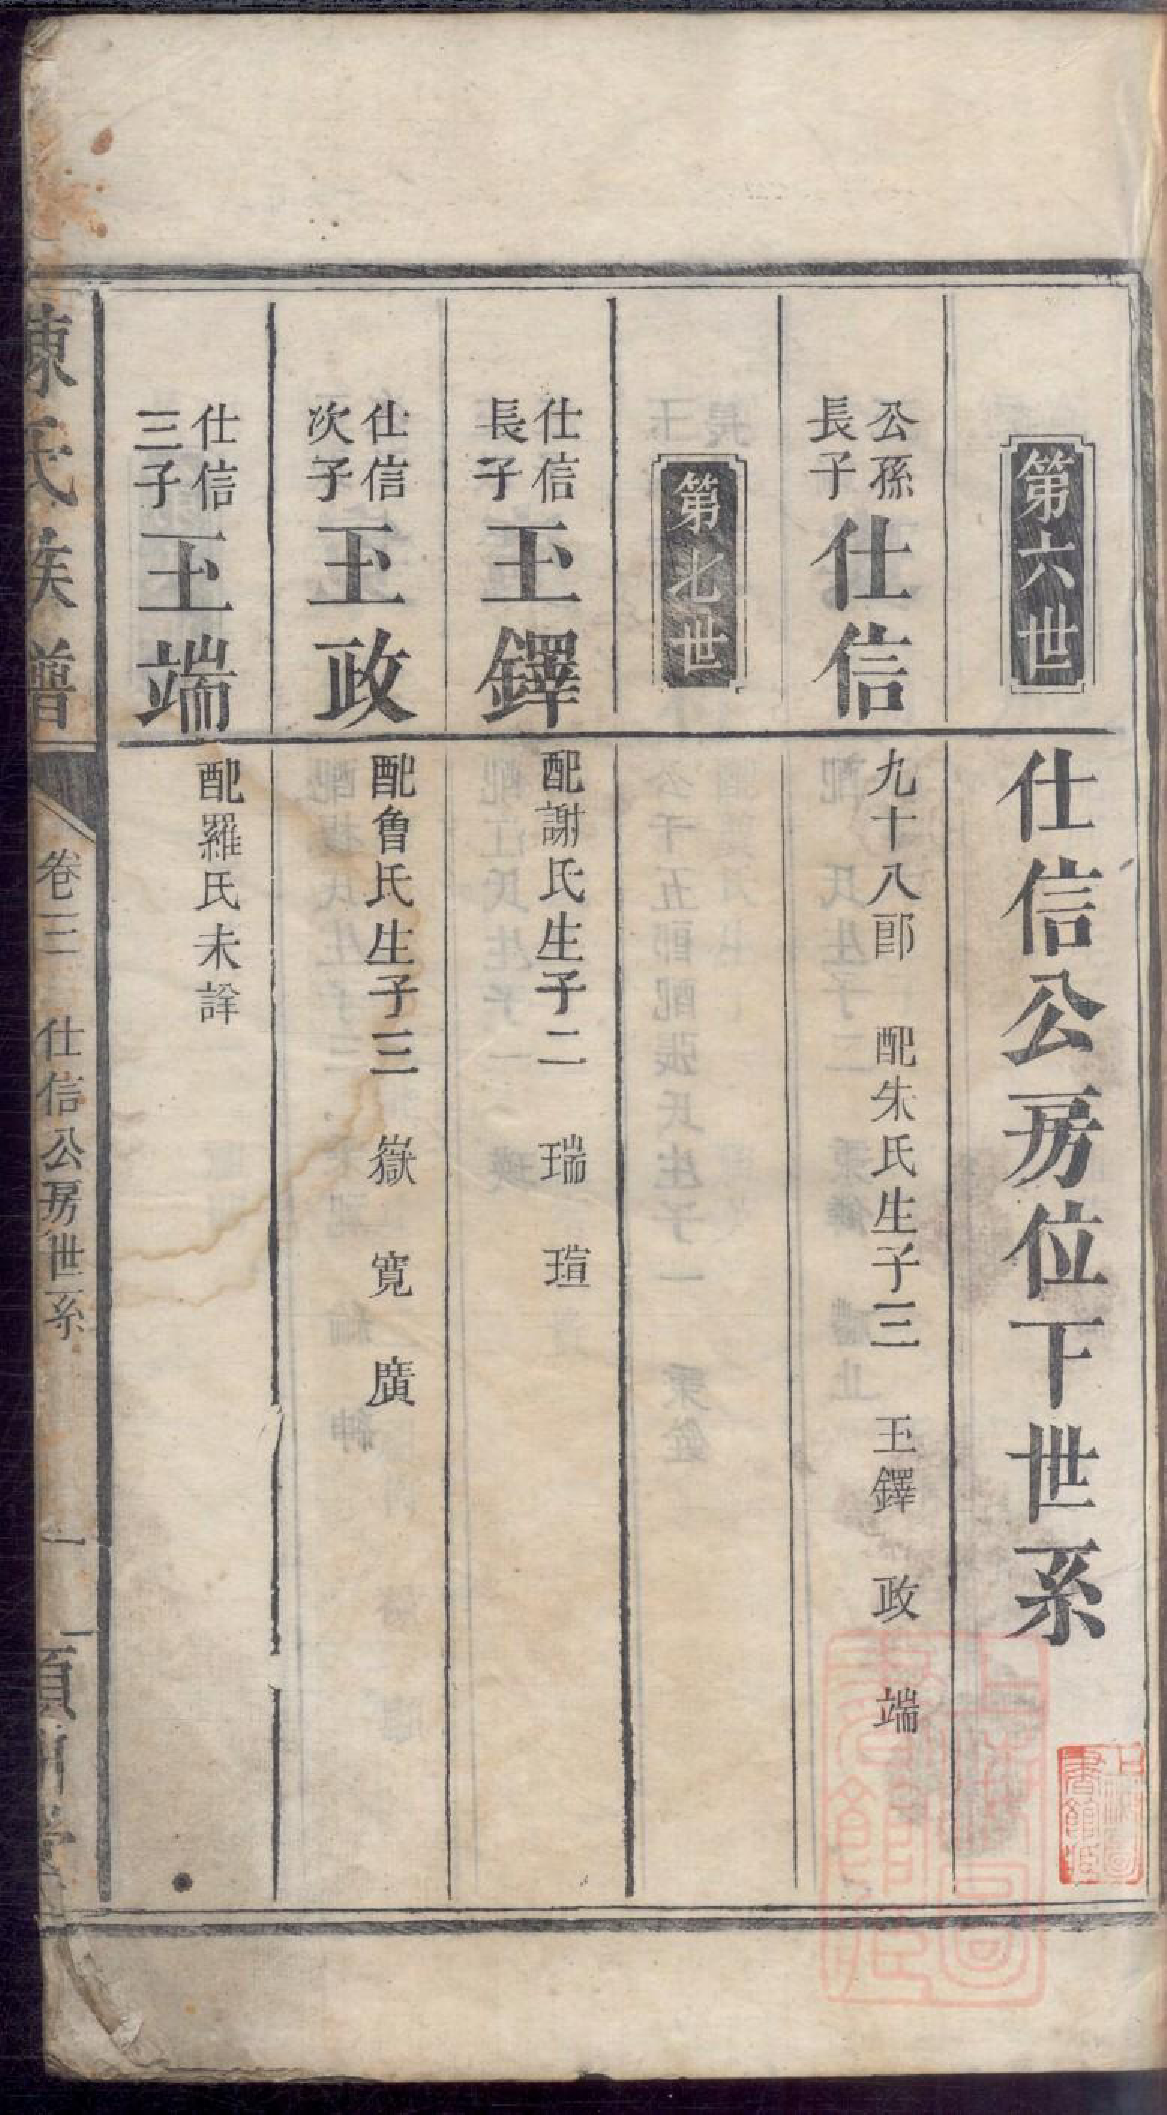 仕信公房位下世系
第六世
公孫長子
仕信
九十八郎 配朱氏生子三 玉鐸 政 端
第七世
仕信長子
玉鐸
配謝氏生子二 瑞 瑄
仕信次子
玉政
配魯氏生子三 嶽 寬 廣
仕信三子
玉端
配羅氏未詳
陳氏族譜
卷三 仕信公房世系 一